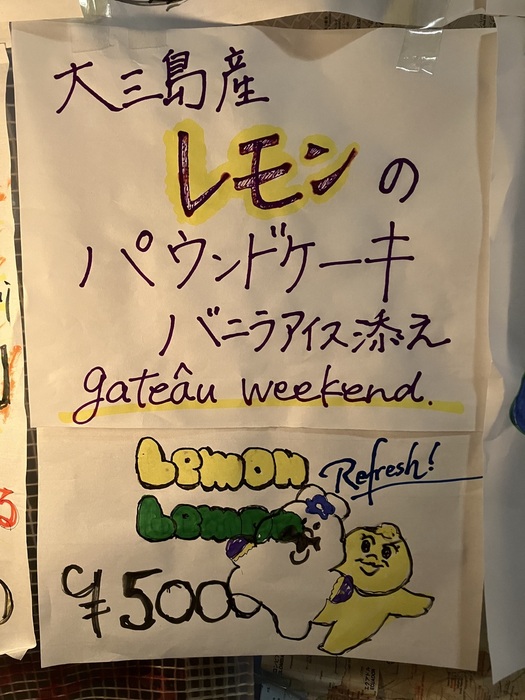 大三島産
レモンの
パウンドケーキ
バニラアイス添え
gateâu weekend.
Lemon
Refresh!
Lemon
¥500